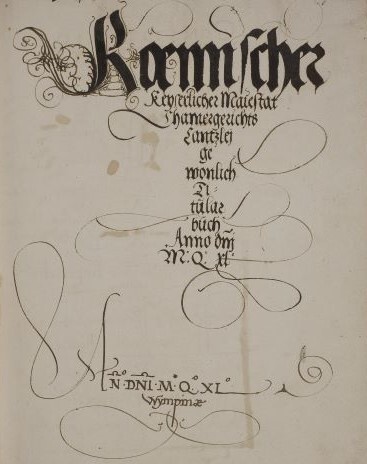 Roemischer
Keyserlicher Maiestat
Chamergerichts
Cantzlei
ge
wonlich
Ti-
tular
buch
Anno dnj
M: Q: xl:
AN° · DNI · M° · Q° · XL°
Wympinæ